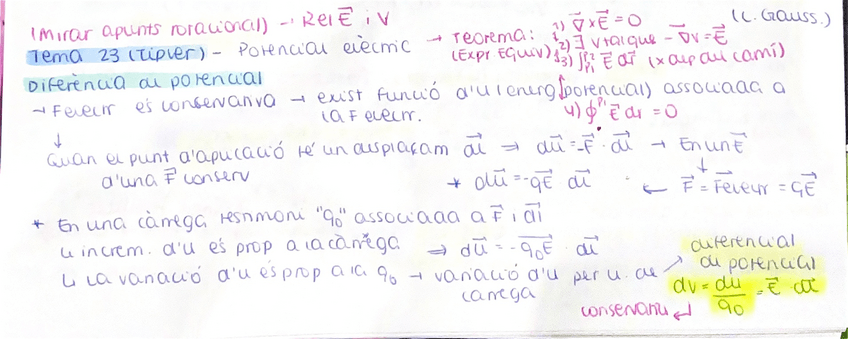 (Mirar apunts rotacional) → Rel E⃗ i V
(C. Gauss.)
Tema 23 (Tipler) - Potencial elèctric → Teorema: (Expr Equiv)
1) ∇⃗ x E⃗ = 0
2) ∃ V tal que - ∇⃗V = E⃗
3) ∫ E⃗ dr⃗ (x dep del camí)
4) ∮ E⃗ dr = 0
Diferència de potencial
→ F electr és conservativa → exist funció d'U (energ potencial) associada a
la F electr.
↓
Quan el punt d'aplicació té un desplaçam dl⃗ ⇒ dU⃗ = -F⃗ · dl⃗ → En un E⃗
d'una F⃗ conserv
* dU⃗ = -qE⃗ dl⃗ ← F⃗ = F⃗electr = qE⃗
* En una càrrega testimoni "q₀" associada a F⃗ i dl⃗
u increm. d'u és prop a la càrrega ⇒ dU⃗ = -q₀E⃗ · dl⃗
↳ La variació d'u és prop a la q₀ → variació d'u per u. de
càrrega
diferencial
de potencial
dv = du/q₀ = E⃗ · dl⃗
conservatiu ↵